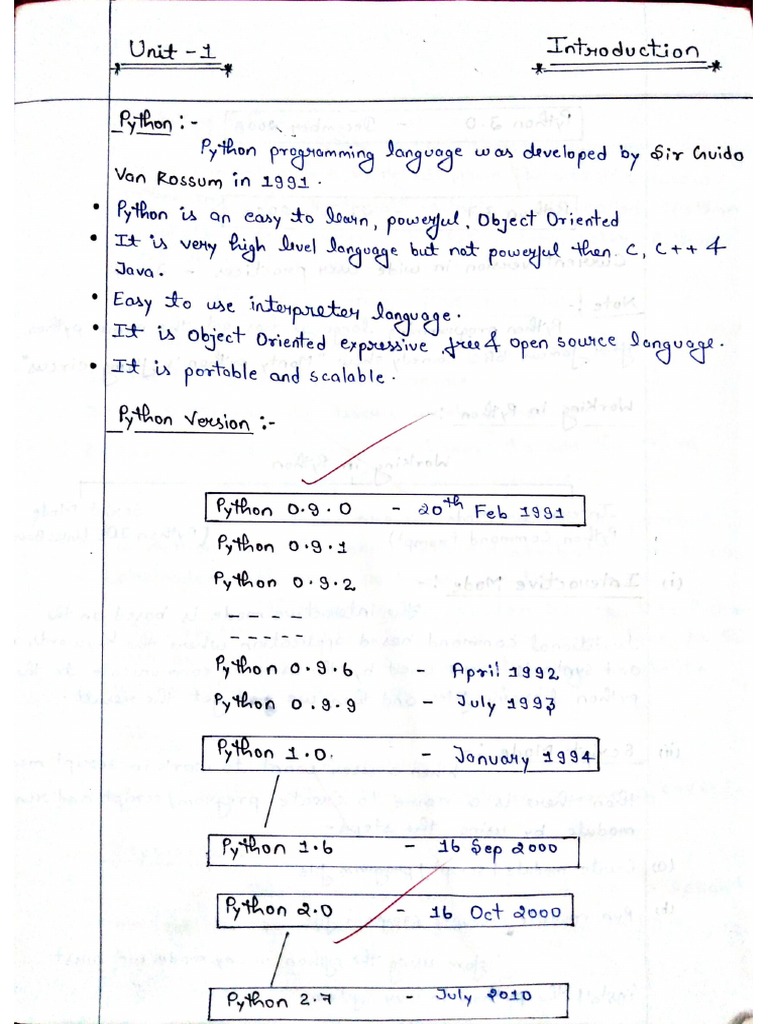 Unit - 1 Introduction
Python :-
Python programming language was developed by Sir Guido
Van Rossum in 1991.
• Python is an easy to learn, powerful, Object Oriented
• It is very high level language but not powerful then C, C++ &
Java.
• Easy to use interpreter language.
• It is Object Oriented expressive, free & open source language.
• It is portable and scalable.
Python Version :-
Python 0.9.0 - 20th Feb 1991
Python 0.9.1
Python 0.9.2
- - - -
- - - - -
Python 0.9.6 - April 1992
Python 0.9.9 - July 1993
Python 1.0. - January 1994
Python 1.6 - 16 Sep 2000
Python 2.0 - 16 Oct 2000
Python 2.7 - July 2010